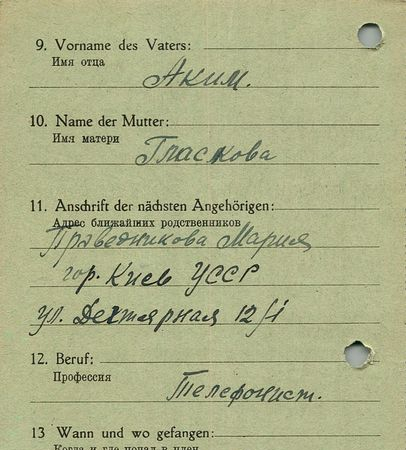 9. Vorname des Vaters:
Имя отца
Аким.
10. Name der Mutter:
Имя матери
Гласкова
11. Anschrift der nächsten Angehörigen:
Адрес ближайших родственников
Праведникова Мария
гор. Киев УССР
ул. Дехтярная 12/1
12. Beruf:
Профессия
Телефонист.
13 Wann und wo gefangen:
Когда и где попал в плен